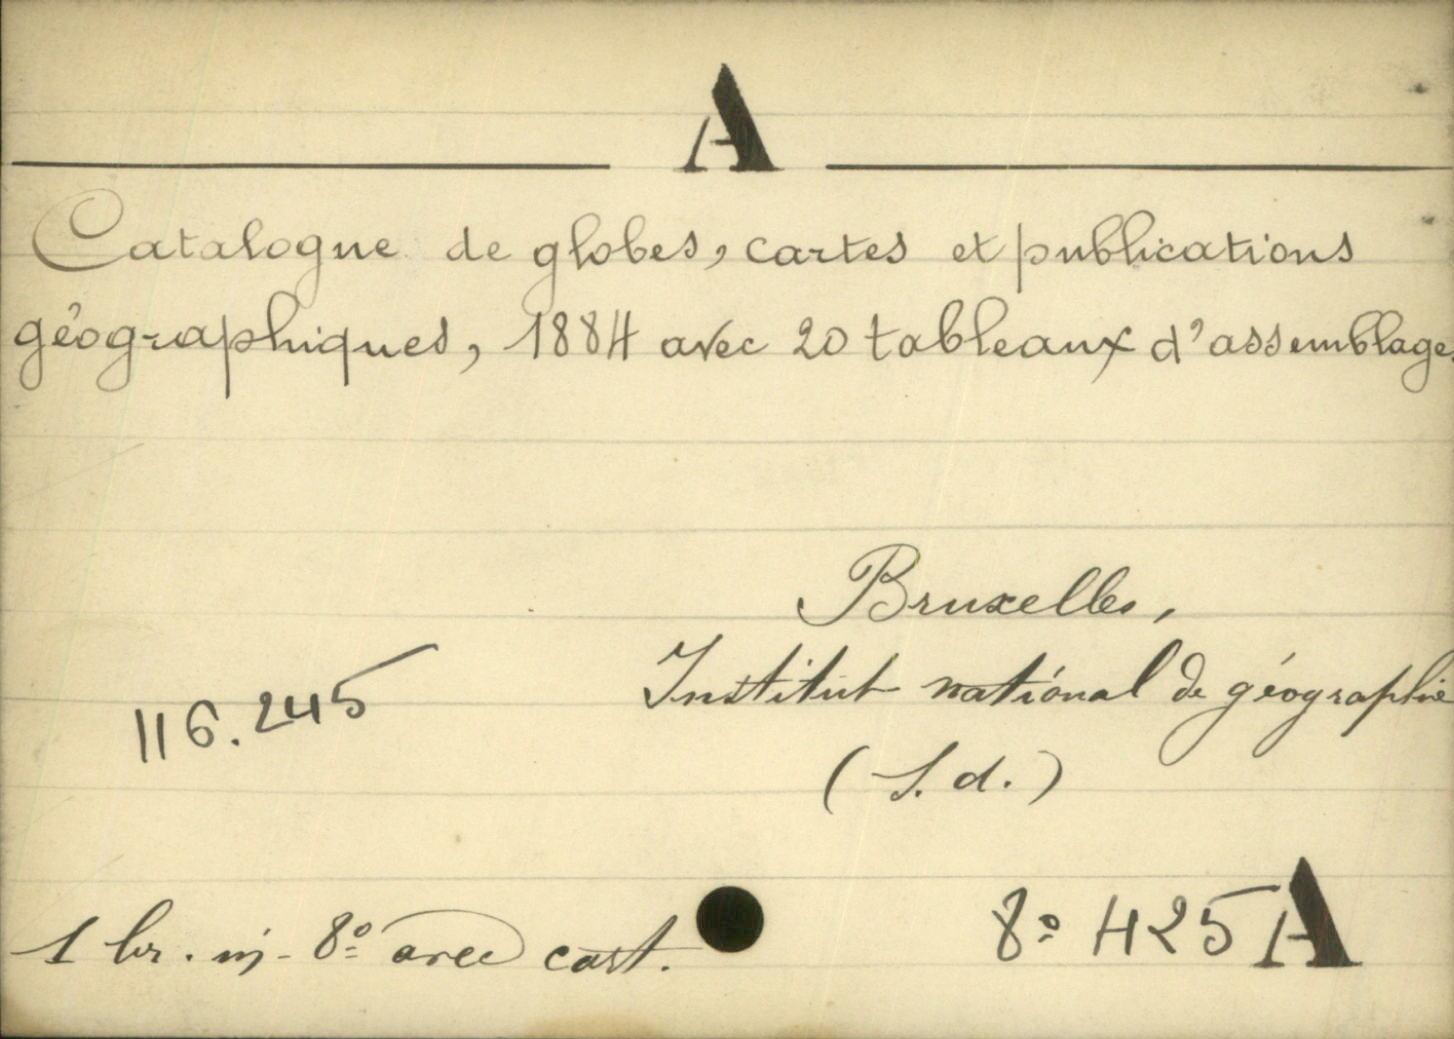 A
Catalogue de globes, cartes et publications
géographiques, 1884 avec 20 tableaux d'assemblage.
Bruxelles,
Institut national de géographie
116.245
(S. d.)
1 br. in-8º avec cart.
8º 425 A